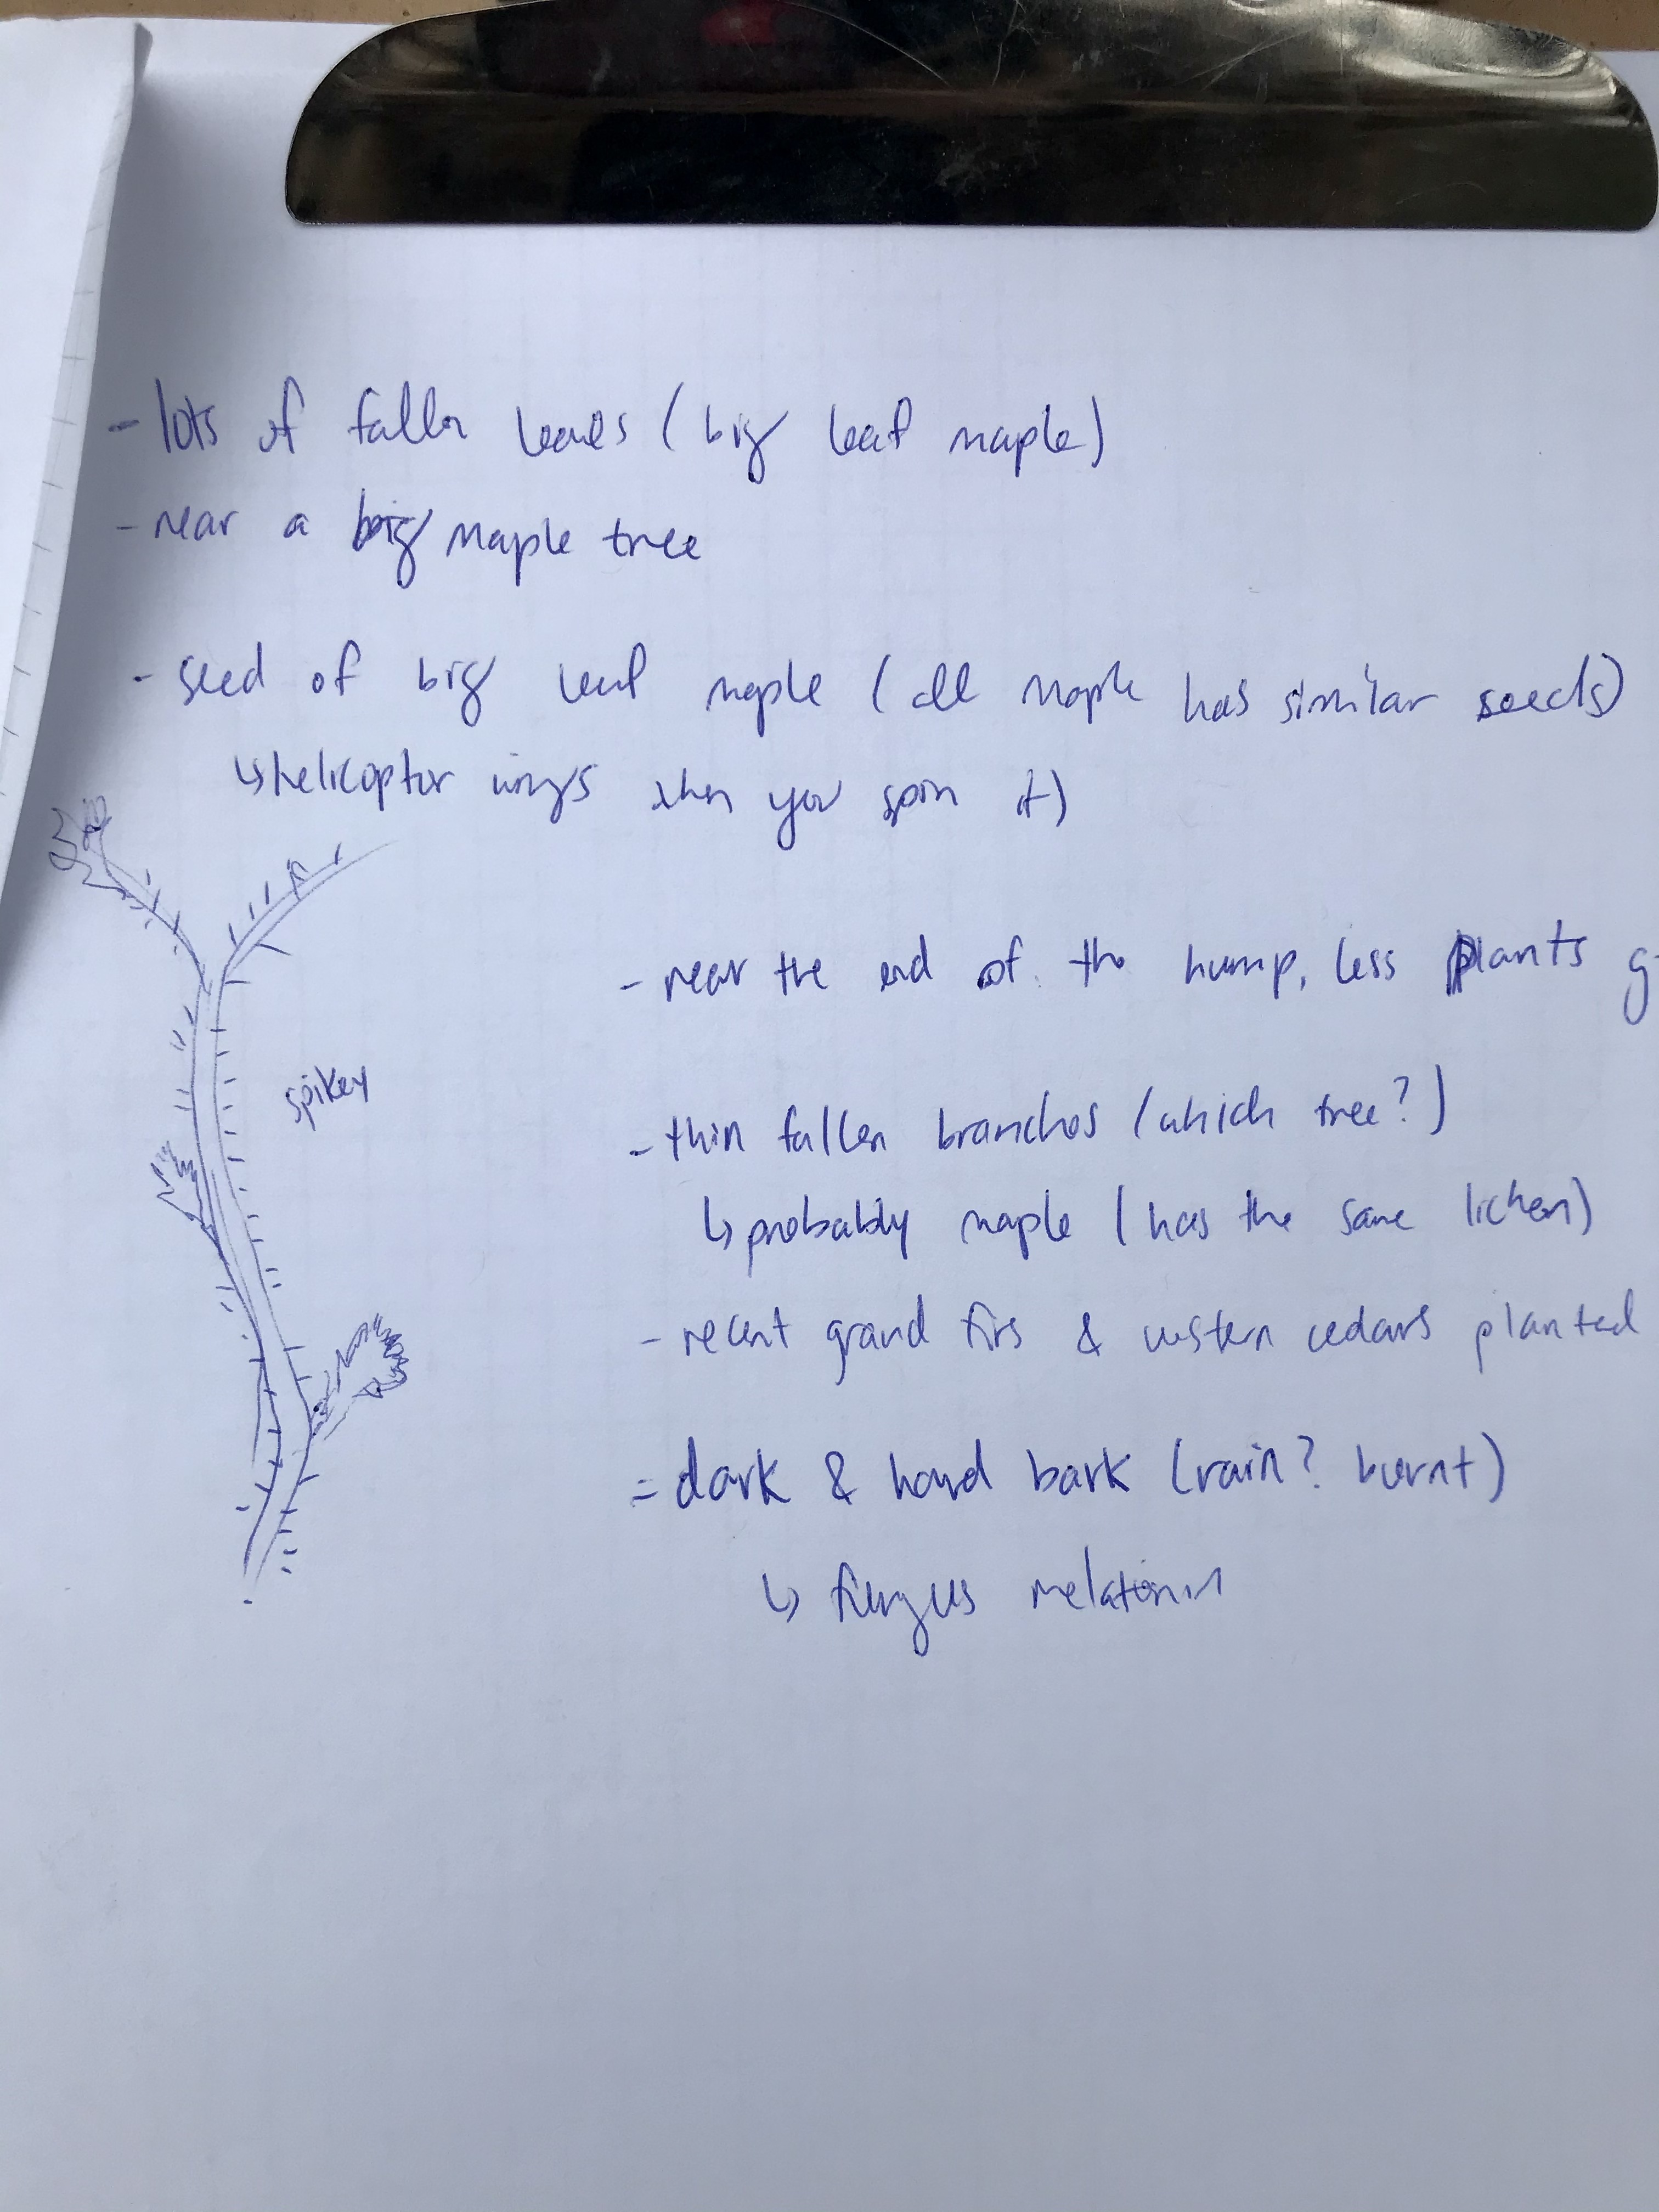 - lots of fallen leaves (big leaf maple)
- near a big maple tree
- seed of big leaf maple (all maple has similar seeds)
↳ helicoptor wings when you spin it)
spikey
- near the end of the hump, less plants g
- thin fallen branches (which tree?)
↳ probably maple (has the same lichen)
- recent grand firs & western cedars planted
- dark & hard bark (rain? burnt)
↳ fungus melatonin